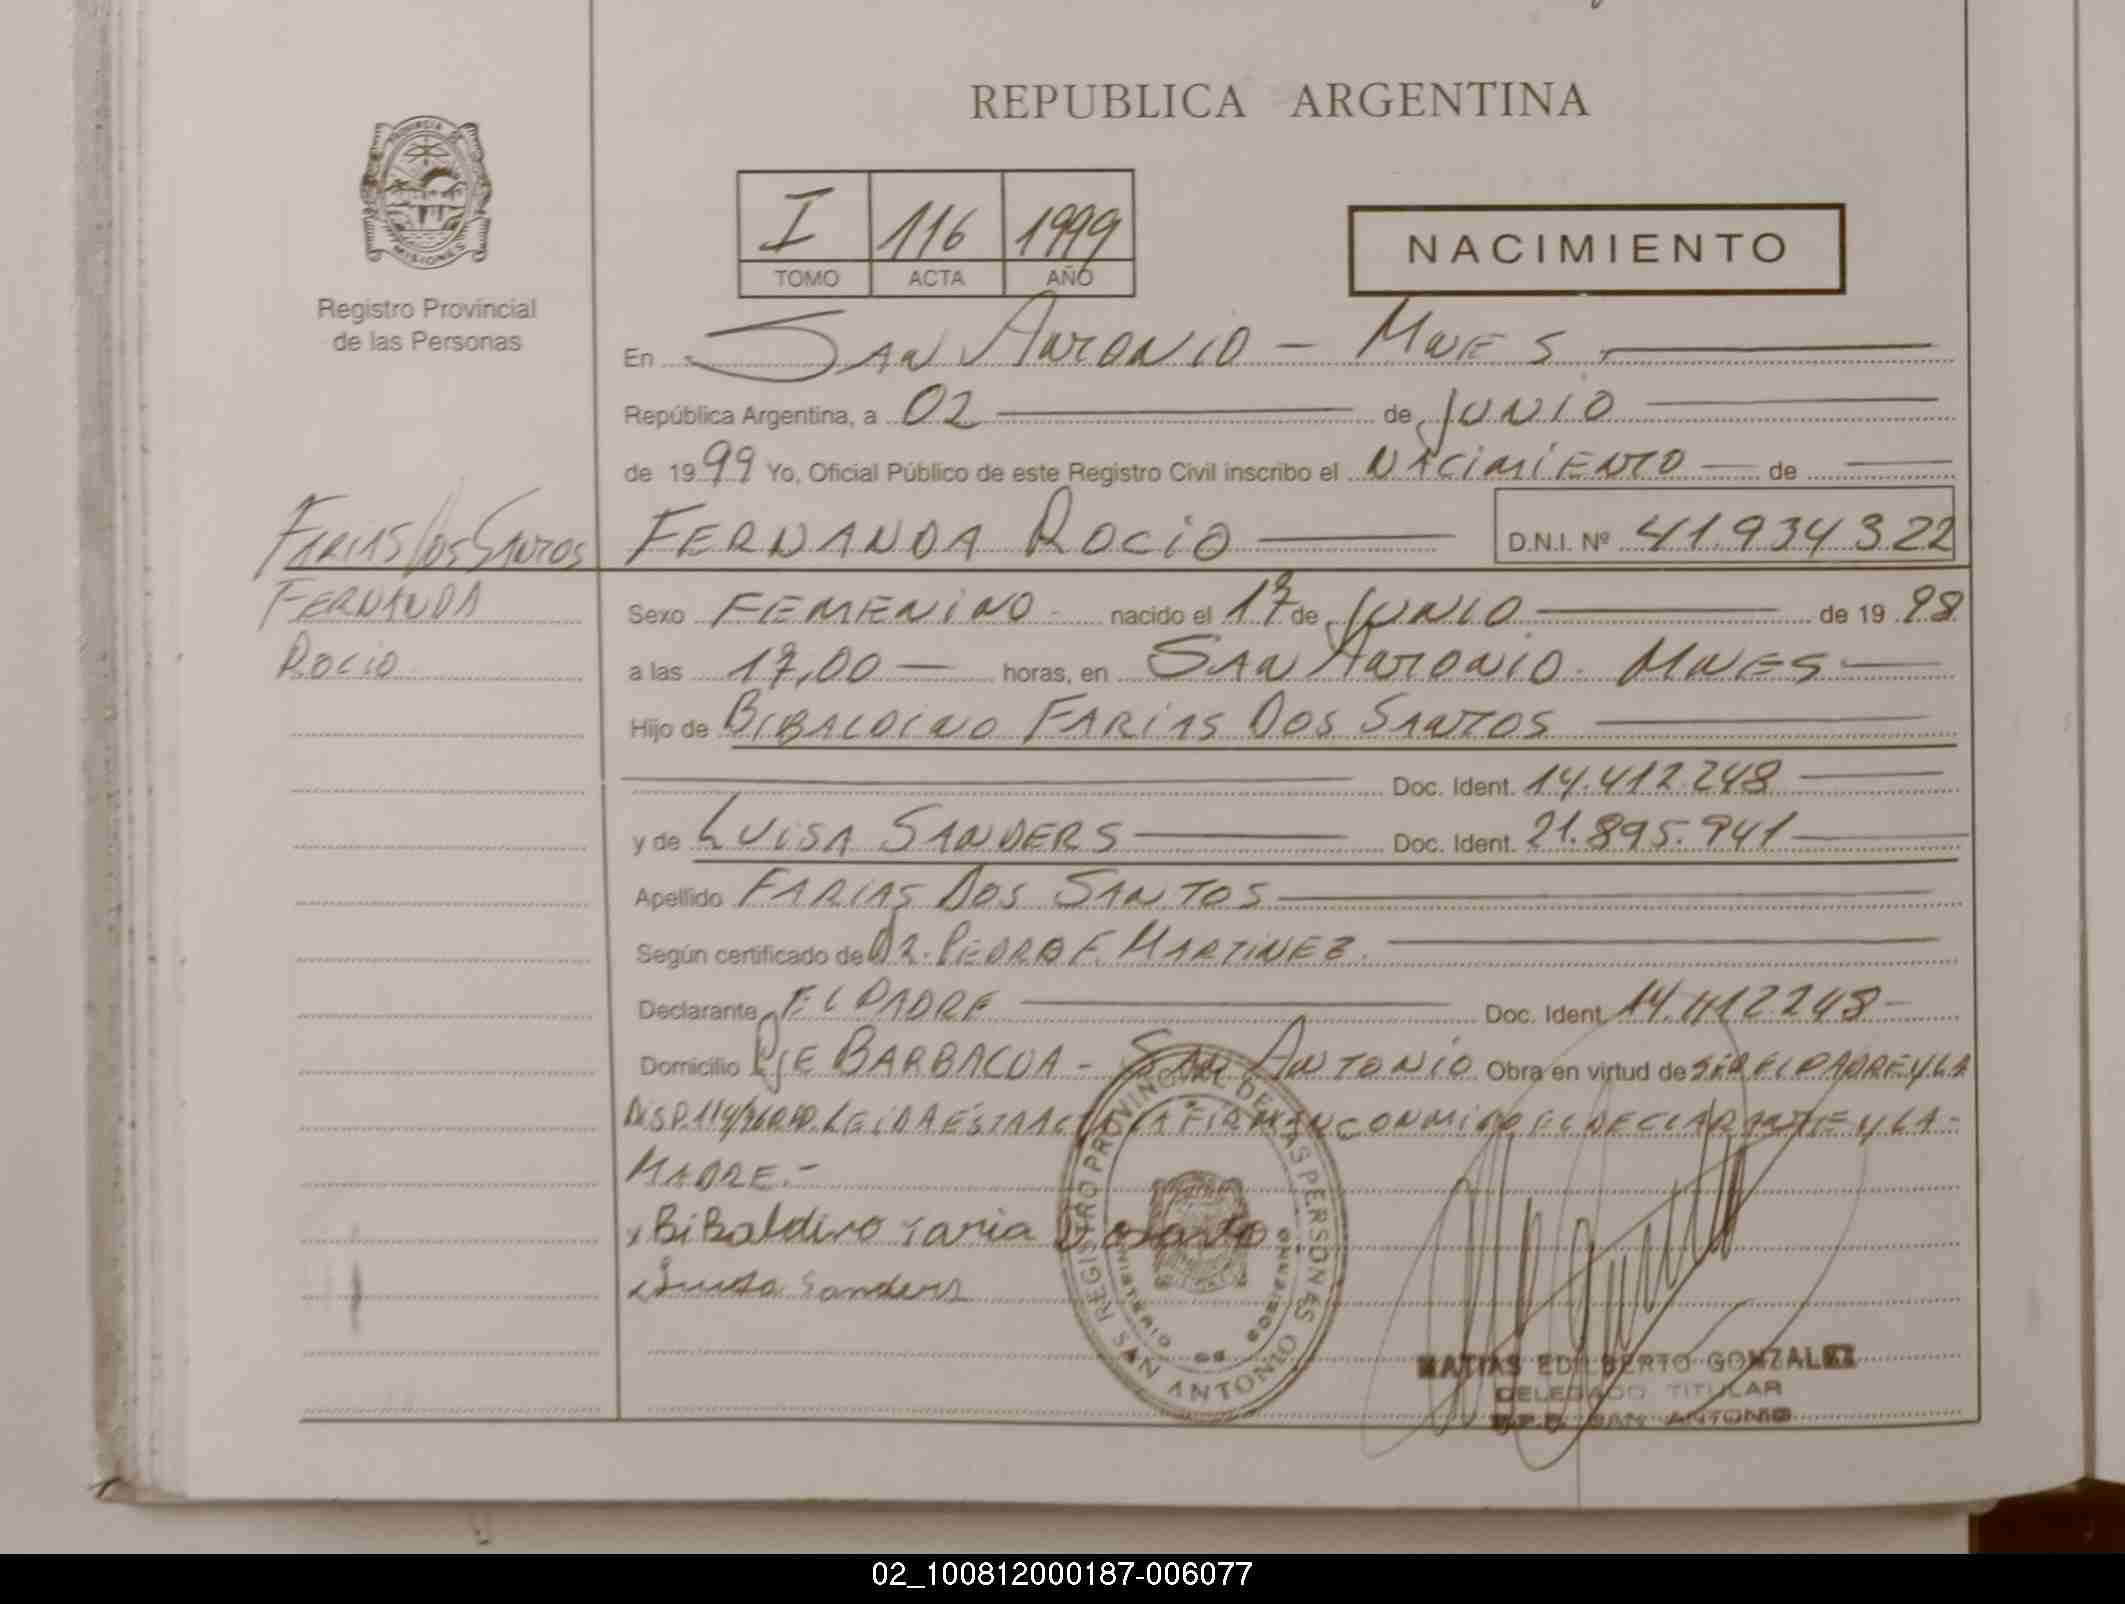 REPUBLICA ARGENTINA
PROVINCIA DE
MISIONES
Registro Provincial
de las Personas
I 116 1999
TOMO ACTA AÑO
NACIMIENTO
En SAN ANTONIO - MNES
República Argentina, a 02 de JUNIO
de 1999 Yo, Oficial Público de este Registro Civil inscribo el NACIMIENTO de
FERNANDA ROCIO D.N.I. Nº 41.934.322
FARIAS DOS SANTOS
FERNANDA
ROCIO
Sexo FEMENINO nacido el 17 de JUNIO de 1998
a las 17,00 horas, en SAN ANTONIO - MNES
Hijo de BIBALDINO FARIAS DOS SANTOS
Doc. Ident. 14.412.248
y de LUISA SANDERS Doc. Ident. 21.895.941
Apellido FARIAS DOS SANTOS
Según certificado de DR. PEDRO F. MARTINEZ
Declarante EL PADRE Doc. Ident. 14.412.248
Domicilio PJE BARBACUA - SAN ANTONIO Obra en virtud de SER EL PADRE Y LA
DISP. 114/96 LEIDA ESTA ACTA LA FIRMAN CONMIGO EL DECLARANTE Y LA
MADRE.-
x BiBaldino Faria
x Luisa Sanders
REGISTRO PROVINCIAL DE LAS PERSONAS
SAN ANTONIO
MINISTERIO DE GOBIERNO
MATIAS EDILBERTO GONZALEZ
DELEGADO TITULAR
R.P.P. SAN ANTONIO
02_100812000187-006077